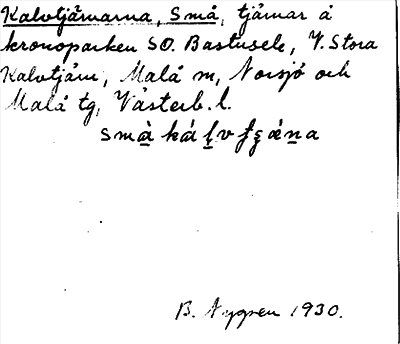 Kalvtjärnarna, Små, tjärnar å
kronoparken SO. Bastusele, V. Stora
Kalvtjärn, Malå sn, Norsjö och
Malå tg, Västerb. l.
små ká
B. Nygren 1930.